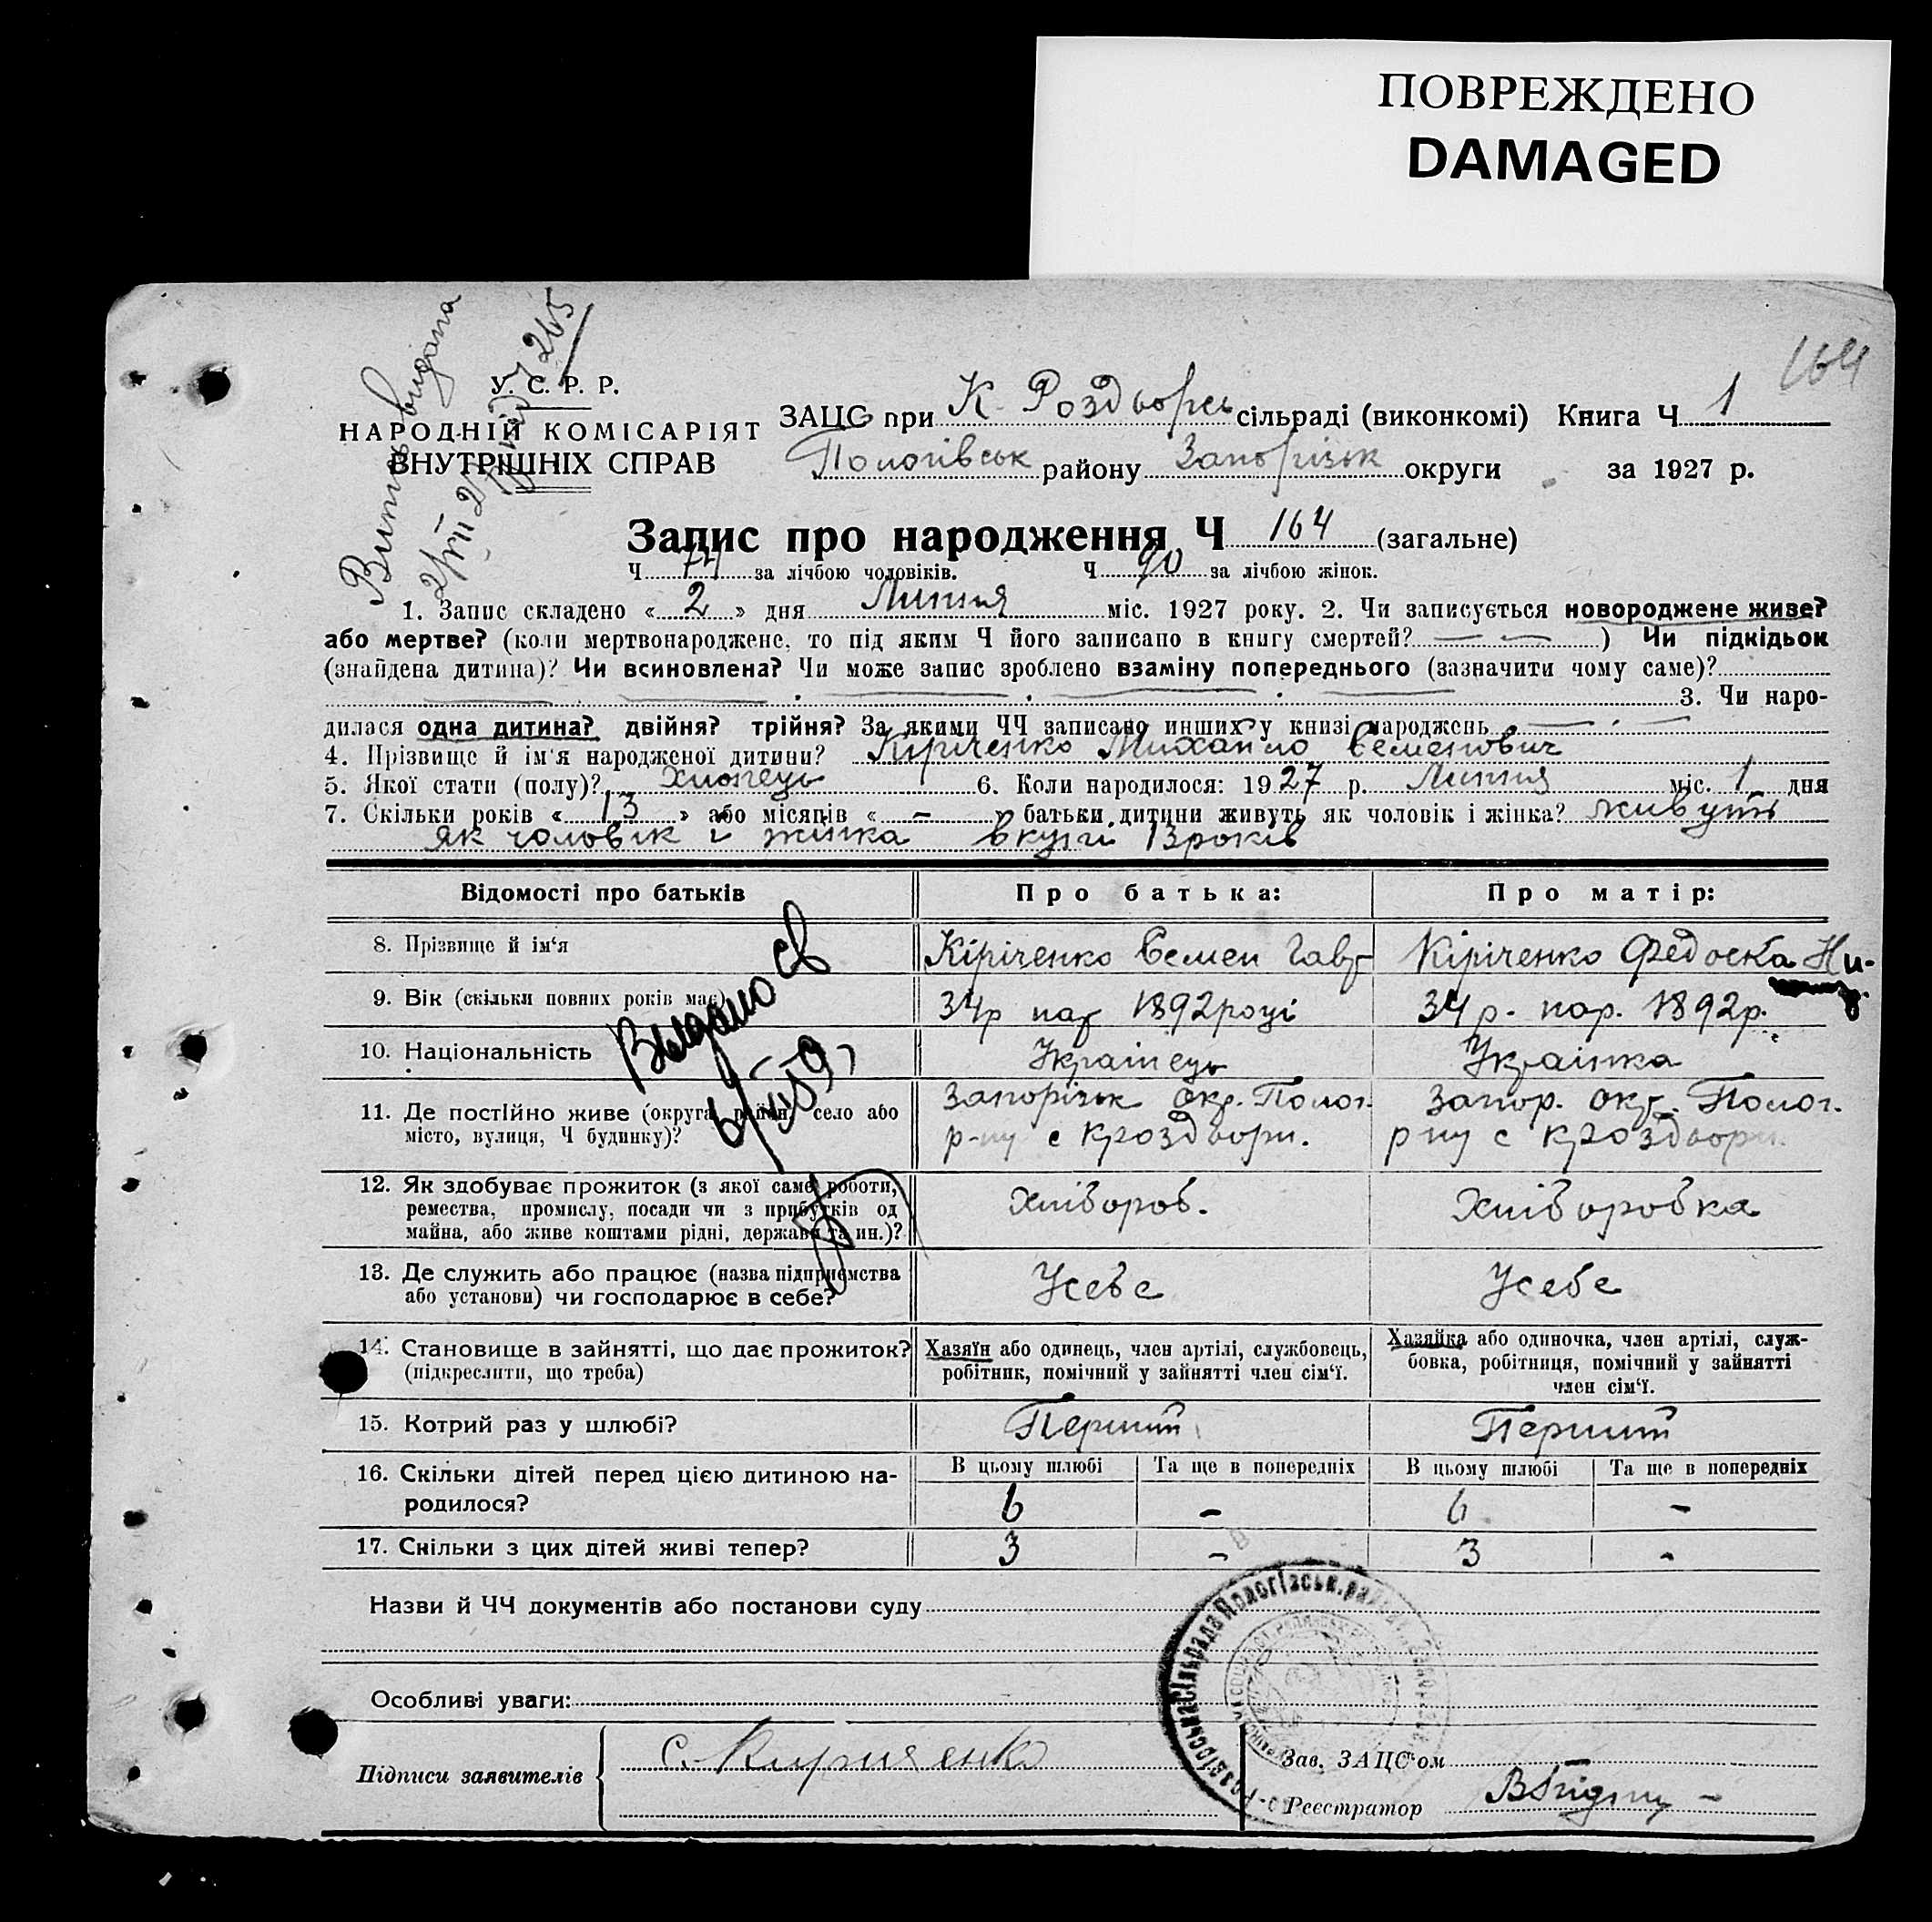 ПОВРЕЖДЕНО
DAMAGED
164
Витяг видана
У. С. Р. Р.
НАРОДНІЙ КОМІСАРІЯТ
ВНУТРІШНІХ СПРАВ
ЗАЦС при К. Роздорсь сільраді (виконкомі) Книга Ч 1
Пологівськ району Запорізьк округи за 1927 р.
Запис про народження Ч 164 (загальне)
Ч 74 за лічбою чоловіків. Ч 90 за лічбою жінок.
1. Запис складено « 2 » дня Липня міс. 1927 року. 2. Чи записується новороджене живе?
або мертве? (коли мертвонароджене, то під яким Ч його записано в книгу смертей? — — ) Чи підкідьок
(знайдена дитина)? Чи всиновлена? Чи може запис зроблено взаміну попереднього (зазначити чому саме)?
3. Чи наро-
дилася одна дитина? двійня? трійня? За якими ЧЧ записано инших у книзі народжень
4. Прізвище й ім'я народженої дитини? Кіріченко Михайло Семенович
5. Якої стати (полу)? хлопець 6. Коли народилося: 1927 р. Липня міс. 1 дня
7. Скільки років « 13 » або місяців « – » батьки дитини живуть як чоловік і жінка? живуть
як чоловік і жінка вкупі 13 років
Відомості про батьків Про батька: Про матір:
8. Прізвище й ім'я Кіріченко Семен Гавр Кіріченко Федоска Ни-
9. Вік (скільки повних років має) 34р нар 1892 році 34 р. нар. 1892р.
10. Національність Українець Українка
Выдано св
11. Де постійно живе (округа, район, село або Запорізьк окр. Полог. Запор. окр. Полог.
місто, вулиця, Ч будинку)? р-ну с Кроздори. р ну с Кроздори
12. Як здобуває прожиток (з якої саме роботи, Хліboроб. Хліборобка
ремества, промислу, посади чи з прибутків од
майна, або живе коштами рідні, держави та ин.)?
13. Де служить або працює (назва підприємства Усебе Усебе
або установи) чи господарює в себе?
14. Становище в зайнятті, що дає прожиток? Хазяїн або одинець, член артілі, службовець, Хазяйка або одиночка, член артілі, служ-
(підкреслити, що треба) робітник, помічний у зайнятті член сім'ї. бовка, робітниця, помічний у зайнятті
член сім'ї.
15. Котрий раз у шлюбі? Перший Перший
16. Скільки дітей перед цією дитиною на- В цьому шлюбі Та ще в попередніх В цьому шлюбі Та ще в попередніх
родилося? 6 - 6 -
17. Скільки з цих дітей живі тепер? 3 - 3 -
Назви й ЧЧ документів або постанови суду
Особливі уваги:
Підписи заявителів С. Кириченко
Зав. ЗАЦС'ом
Реєстратор